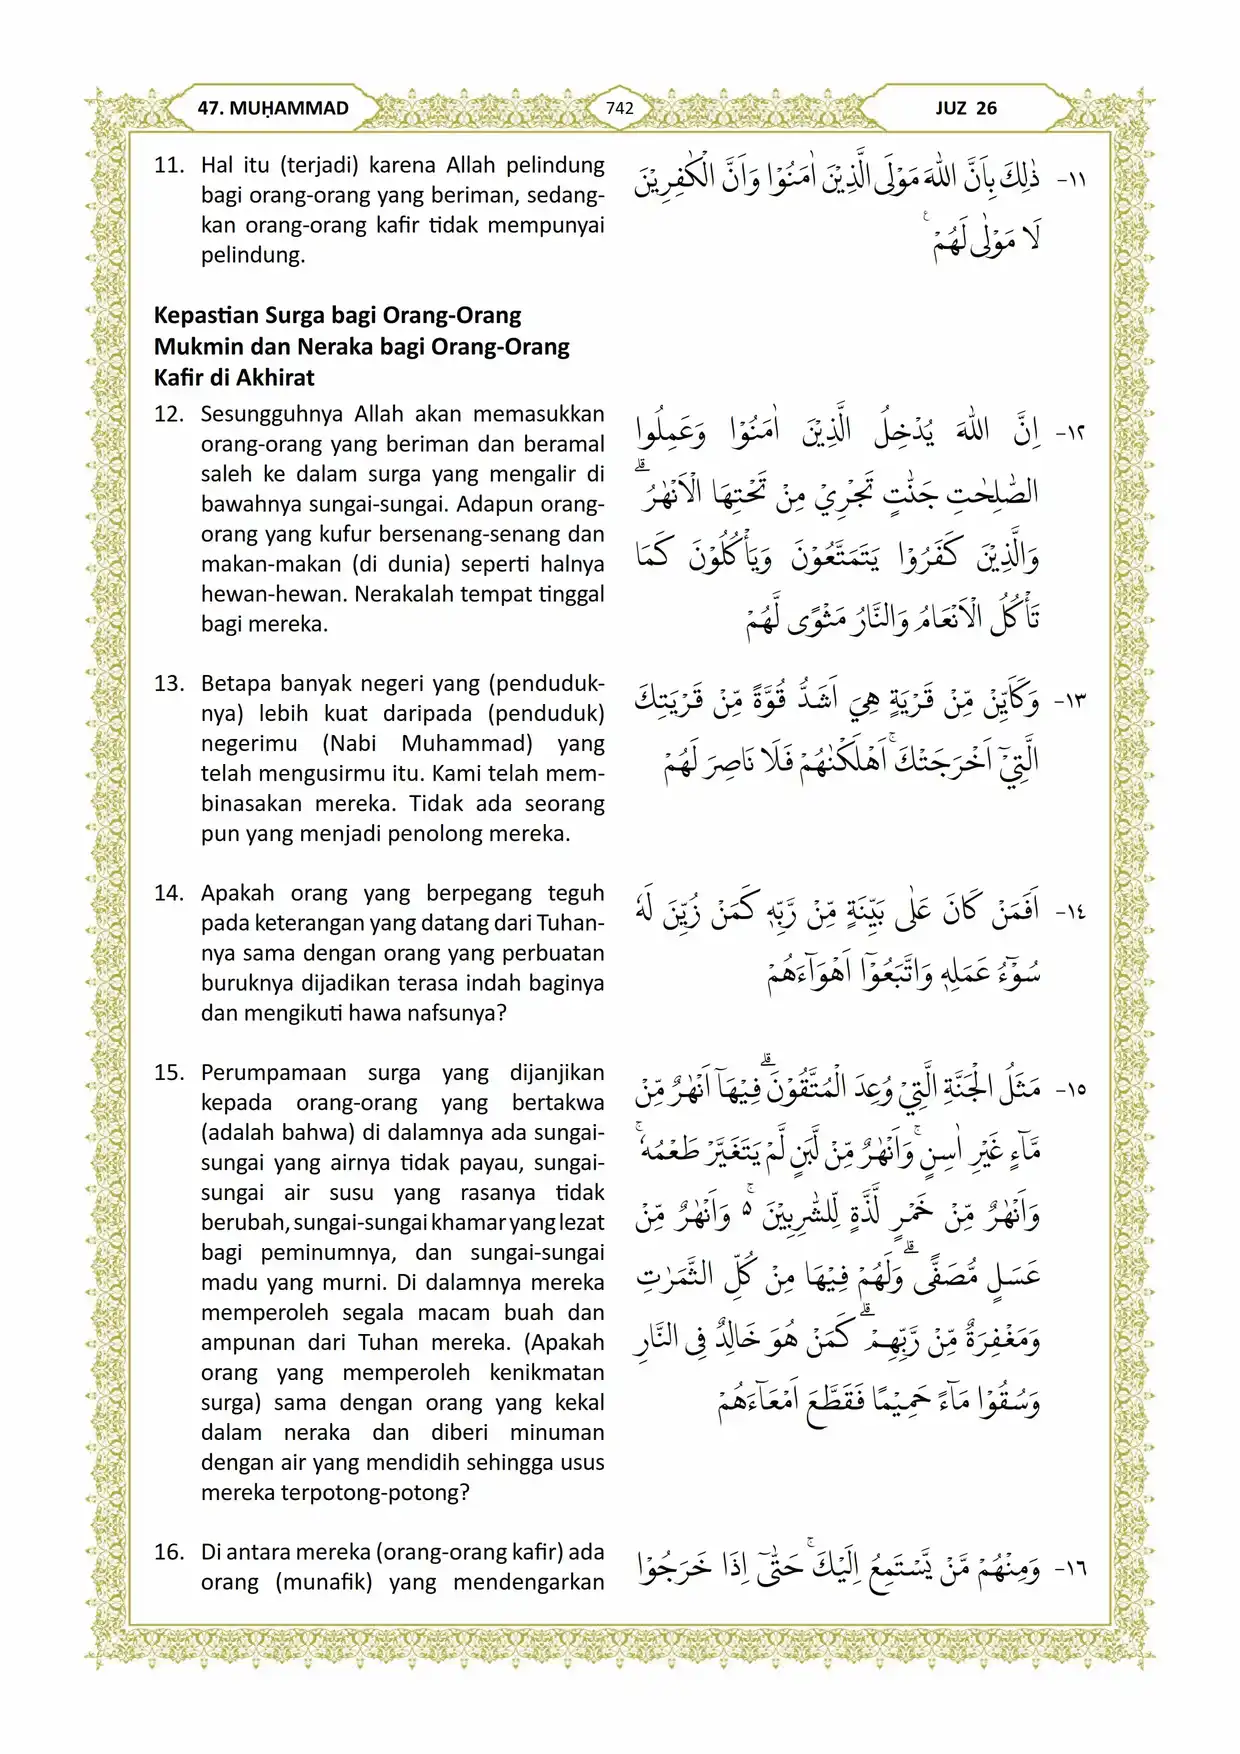 47. MUḤAMMAD
742
JUZ 26
11. Hal itu (terjadi) karena Allah pelindung
bagi orang-orang yang beriman, sedang-
kan orang-orang kafir tidak mempunyai
pelindung.
١١- ذٰلِكَ بِاَنَّ اللّٰهَ مَوْلَى الَّذِيْنَ اٰمَنُوْا وَاَنَّ الْكٰفِرِيْنَ
لَا مَوْلٰى لَهُمْ ࣖ
Kepastian Surga bagi Orang-Orang
Mukmin dan Neraka bagi Orang-Orang
Kafir di Akhirat
12. Sesungguhnya Allah akan memasukkan
orang-orang yang beriman dan beramal
saleh ke dalam surga yang mengalir di
bawahnya sungai-sungai. Adapun orang-
orang yang kufur bersenang-senang dan
makan-makan (di dunia) seperti halnya
hewan-hewan. Nerakalah tempat tinggal
bagi mereka.
١٢- اِنَّ اللّٰهَ يُدْخِلُ الَّذِيْنَ اٰمَنُوْا وَعَمِلُوا
الصّٰلِحٰتِ جَنّٰتٍ تَجْرِيْ مِنْ تَحْتِهَا الْاَنْهٰرُ ۗ
وَالَّذِيْنَ كَفَرُوْا يَتَمَتَّعُوْنَ وَيَأْكُلُوْنَ كَمَا
تَأْكُلُ الْاَنْعَامُ وَالنَّارُ مَثْوًى لَّهُمْ
13. Betapa banyak negeri yang (penduduk-
nya) lebih kuat daripada (penduduk)
negerimu (Nabi Muhammad) yang
telah mengusirmu itu. Kami telah mem-
binasakan mereka. Tidak ada seorang
pun yang menjadi penolong mereka.
١٣- وَكَاَيِّنْ مِّنْ قَرْيَةٍ هِيَ اَشَدُّ قُوَّةً مِّنْ قَرْيَتِكَ
الَّتِيْٓ اَخْرَجَتْكَ ۚ اَهْلَكْنٰهُمْ فَلَا نَاصِرَ لَهُمْ
14. Apakah orang yang berpegang teguh
pada keterangan yang datang dari Tuhan-
nya sama dengan orang yang perbuatan
buruknya dijadikan terasa indah baginya
dan mengikuti hawa nafsunya?
١٤- اَفَمَنْ كَانَ عَلٰى بَيِّنَةٍ مِّنْ رَّبِّهٖ كَمَنْ زُيِّنَ لَهٗ
سُوْۤءُ عَمَلِهٖ وَاتَّبَعُوْٓا اَهْوَاۤءَهُمْ
15. Perumpamaan surga yang dijanjikan
kepada orang-orang yang bertakwa
(adalah bahwa) di dalamnya ada sungai-
sungai yang airnya tidak payau, sungai-
sungai air susu yang rasanya tidak
berubah, sungai-sungai khamar yang lezat
bagi peminumnya, dan sungai-sungai
madu yang murni. Di dalamnya mereka
memperoleh segala macam buah dan
ampunan dari Tuhan mereka. (Apakah
orang yang memperoleh kenikmatan
surga) sama dengan orang yang kekal
dalam neraka dan diberi minuman
dengan air yang mendidih sehingga usus
mereka terpotong-potong?
١٥- مَثَلُ الْجَنَّةِ الَّتِيْ وُعِدَ الْمُتَّقُوْنَ ۗ فِيْهَآ اَنْهٰرٌ مِّنْ
مَّاۤءٍ غَيْرِ اٰسِنٍ ۚ وَاَنْهٰرٌ مِّنْ لَّبَنٍ لَّمْ يَتَغَيَّرْ طَعْمُهٗ ۚ
وَاَنْهٰرٌ مِّنْ خَمْرٍ لَّذَّةٍ لِّلشّٰرِبِيْنَ ۚ ە وَاَنْهٰرٌ مِّنْ
عَسَلٍ مُّصَفًّى ۗ وَلَهُمْ فِيْهَا مِنْ كُلِّ الثَّمَرٰتِ
وَمَغْفِرَةٌ مِّنْ رَّبِّهِمْ ۗ كَمَنْ هُوَ خَالِدٌ فِى النَّارِ
وَسُقُوْا مَاۤءً حَمِيْمًا فَقَطَّعَ اَمْعَاۤءَهُمْ
16. Di antara mereka (orang-orang kafir) ada
orang (munafik) yang mendengarkan
١٦- وَمِنْهُمْ مَّنْ يَّسْتَمِعُ اِلَيْكَ ۚ حَتّٰىٓ اِذَا خَرَجُوْا